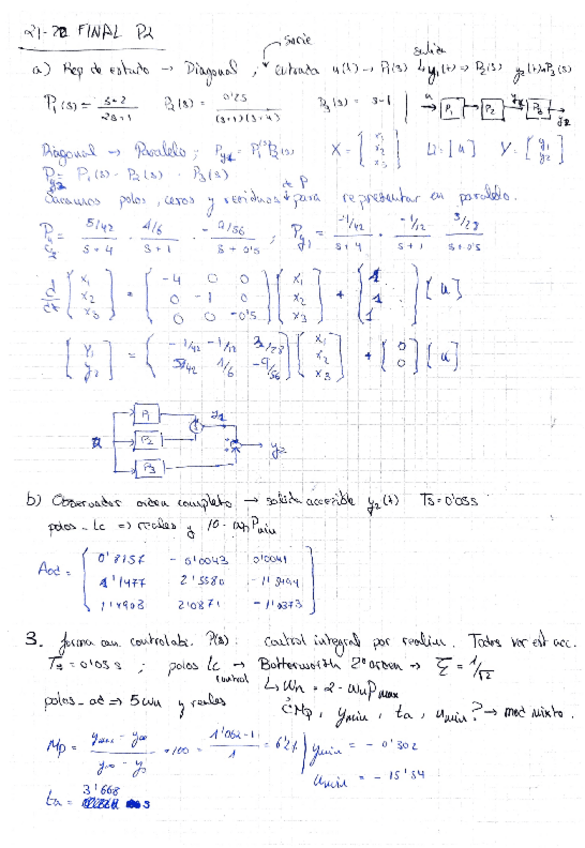 21-22 FINAL P2
serie
salida
a) Rep de estado → Diagonal ; entrada u(t) → P1(s) y1(t) → P2(s) y2(t) P3(s)
P1(s) = s+2 / 2s+1 P2(s) = 0'25 / (s+1)(s+4) P3(s) = s-1
u P1 P2 y1 P3 y2
Diagonal → Paralelo ; X = [x1 x2 x3] U = [u] Y = [y1 y2]
P y2 = P1(s) · P2(s) · P3(s)
de P
Sacamos polos, ceros y residuos para representar en paralelo.
5/42 / s+4 1/6 / s+1 -9/56 / s+0'5 ; Py1 = -1/42 / s+4 -1/12 / s+1 3/28 / s+0'5
d/dt [x1 x2 x3] = [-4 0 0
0 -1 0
0 0 -0'5] [x1 x2 x3] + [1 1 1] [u]
[y1 y2] = [-1/42 -1/12 3/28
5/42 1/6 -9/56] [x1 x2 x3] + [0 0] [u]
P1
P2
P3
y2
b) Observador orden completo → salida accesible y2(t) Ts = 0'05s
polos - Lc => reales y 10 · wn Pmin
Aod = 0'8157 -0'0043 0'0041
3. forma can. controlab. P(s). control integral por realim. Todas var est acc.
Ts = 0'05 s ; polos Lc → Butterworth 2º orden → ξ = 1/√2
control
↳ wn = 2 · wn Pmax
polos - ad => 5wn y reales
¿Mp, ymin, ta, umin? → mod mixto.
Mp = ymax - y∞ / y∞ - y0 · 100 = 1'062-1 / 1 = 6'2% ymin = -0'302
umin = -15'54
ta = 3'668 s